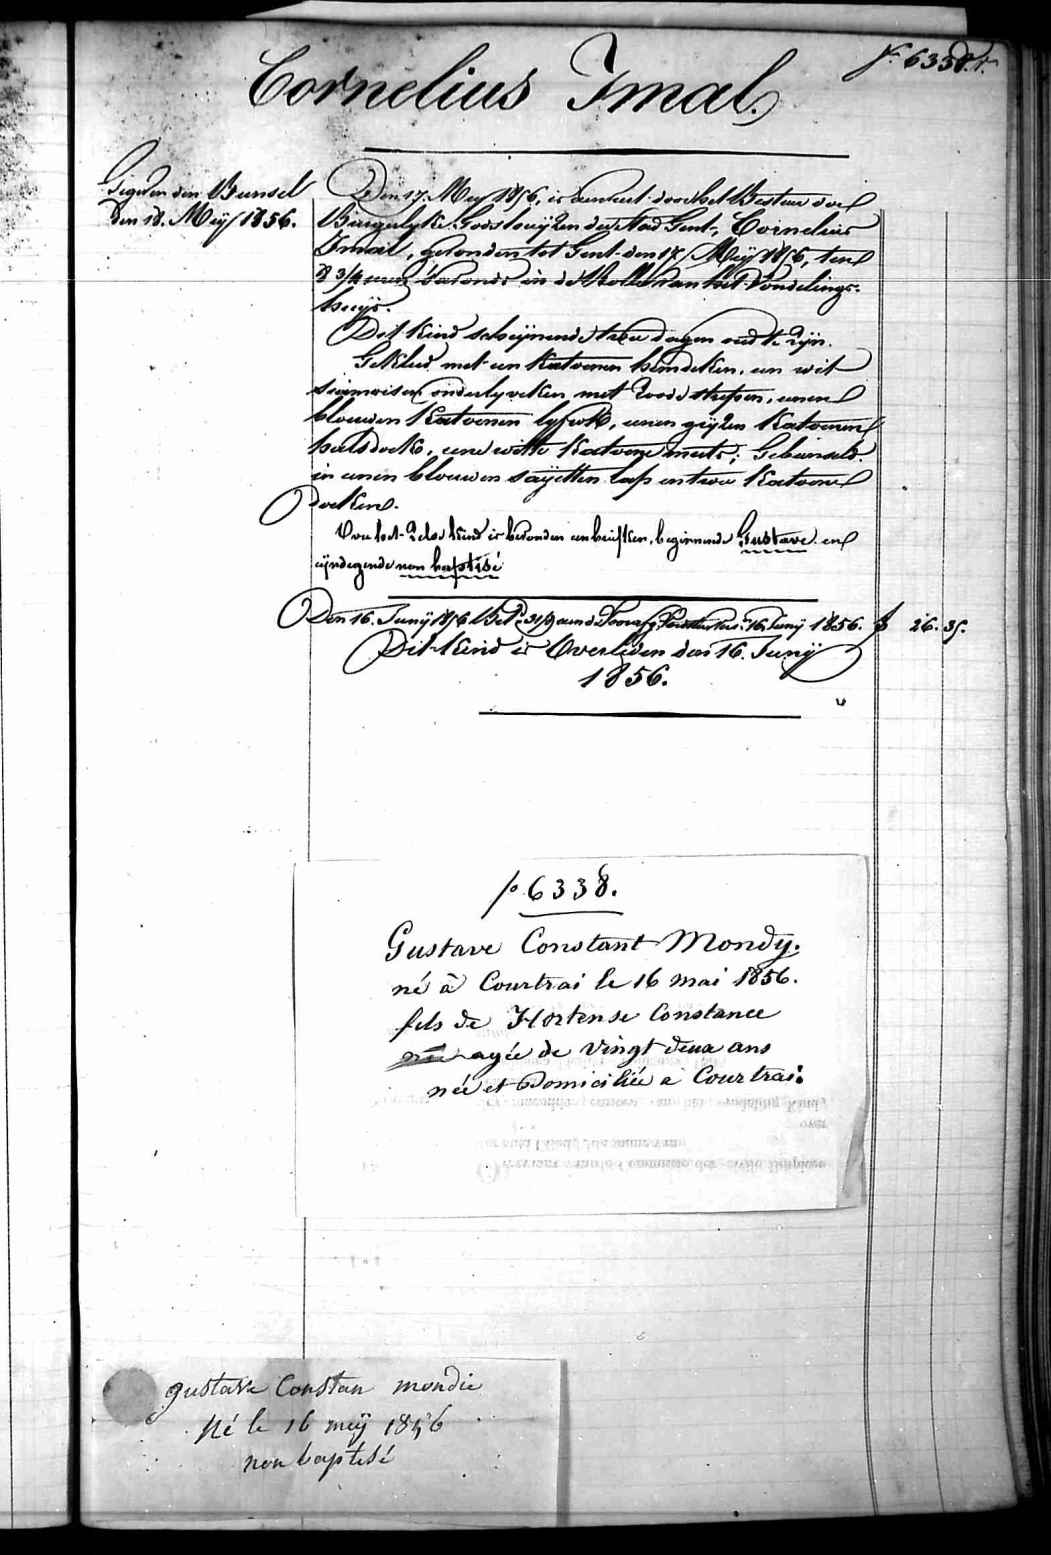 f° 6338. r.
Cornelius Imal.
Gegeven den Bunsel
den 18. Meÿ 1856.
Den 17. Mey 1856, is aanveert door het Bestuer der
Burgerlyke Godshuijzen der Stad Gent, Cornelius
Imal, gevonden tot Gent den 17 Meÿ 1856, ten
8 3/4 uren 's avonds in de Rolle van het Vondelings-
huijs.
Dit kind scheijnende twee dagen oud te zijn.
Gekleed met een Katoenen hemdeken, een wit
onderlyveken met roode strepen, eenen
blouwen Katoenen lyfrok, eenen grijzen Katoenen
halsdoek, eene witte Katoene muts; Gebunseld
in eenen blouwen saÿetten lap en twee Katoene
doeken.
Van het zelve kind is bevonden een briefken, beginnende Gustave en
eijndegende non baptisé
Den 16. Junÿ 1856 Bet. 31 16 Junÿ 1856. f 26. 35.
Dit Kind is Overleden den 16. Junÿ
1856.
f° 6338.
Gustave Constant Mondy.
né à Courtrai le 16 mai 1856.
fils de Hortense Constance
agée de vingt deux ans
née et Domiciliée a Courtrai.
gustave Constan mondie
Né le 16 meÿ 1856
non baptisé